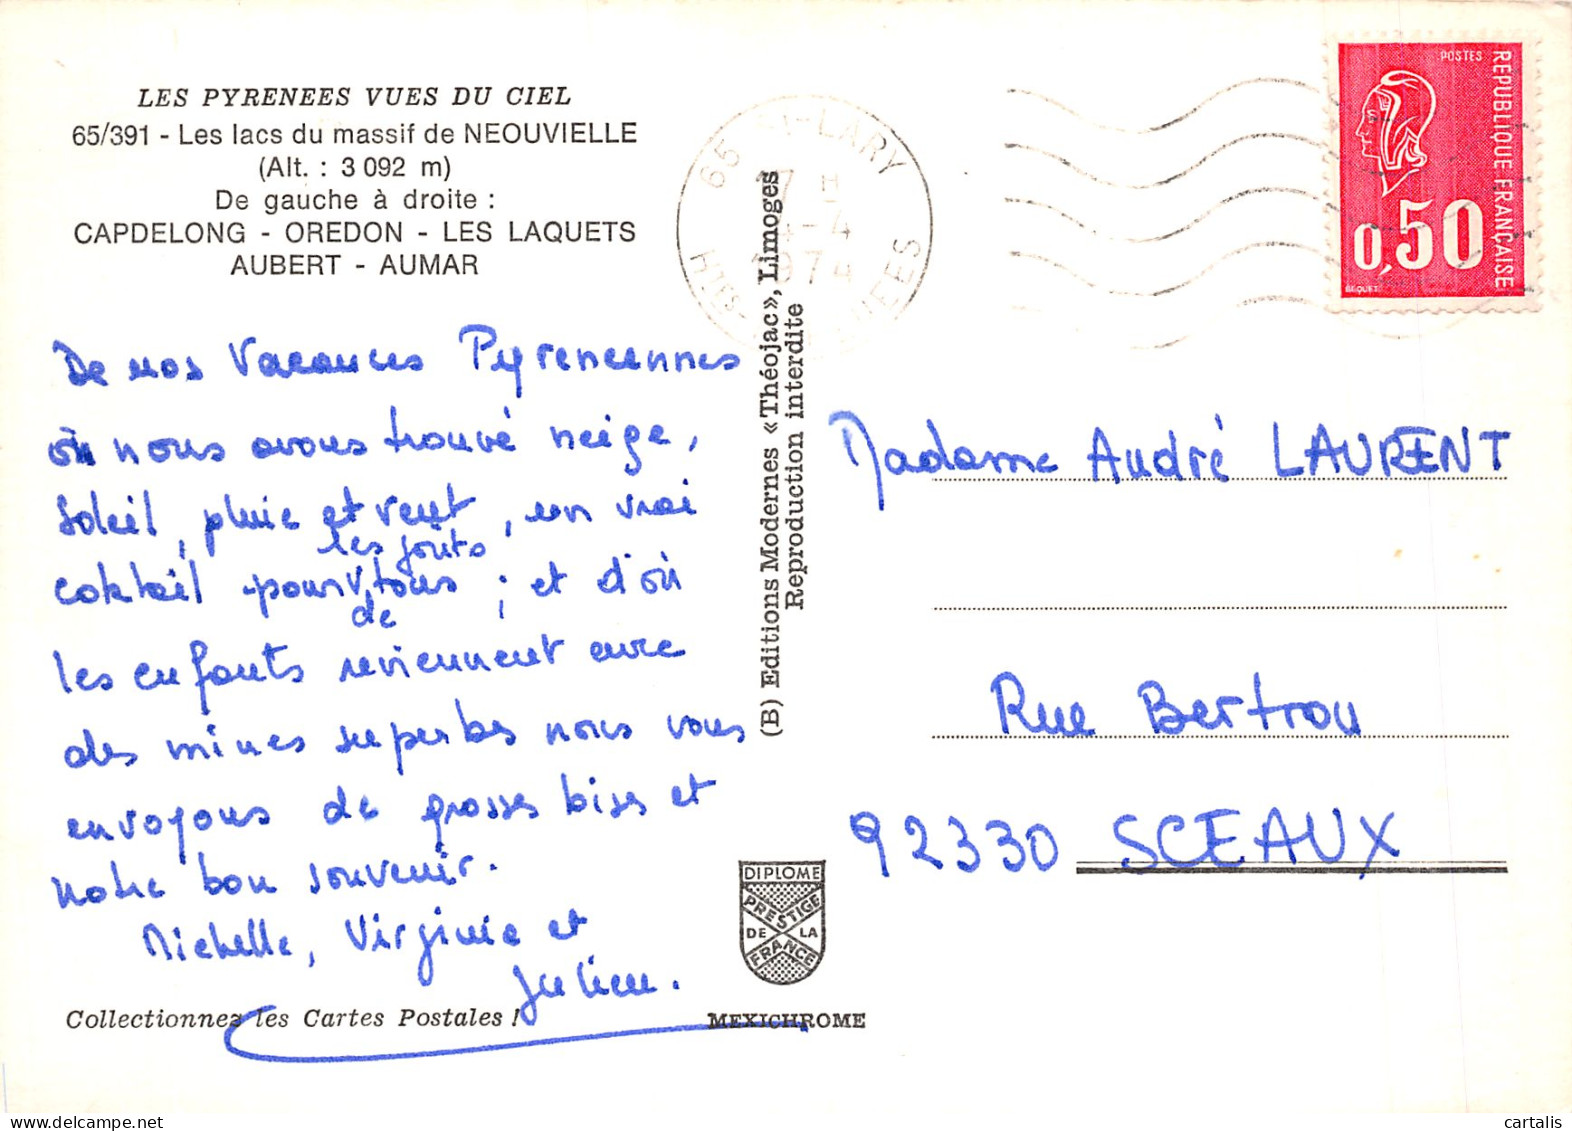 LES PYRENEES VUES DU CIEL
65/391 - Les lacs du massif de NEOUVIELLE
(Alt. : 3 092 m)
De gauche à droite :
CAPDELONG - OREDON - LES LAQUETS
AUBERT - AUMAR
De nos Vacances Pyreneennes
où nous avons trouvé neige,
soleil, pluie et vent, un vrai
les goûts
coktail pour tous ; et d'où
de
les enfants reviennent avec
des mines superbes nous vous
envoyons de grosses bises et
notre bon souvenir.
Michelle, Virginie et
Julien.
Collectionnez les Cartes Postales !
(B) Editions Modernes «Théojac», Limoges
Reproduction interdite
DIPLOME
PRESTIGE
DE LA
FRANCE
MEXICHROME
65 ST-LARY
17 H
4-4
1974
HTES PYRENEES
POSTES
REPUBLIQUE FRANÇAISE
0,50
BEQUET
Madame André LAURENT
Rue Bertron
92330 SCEAUX
cartalis